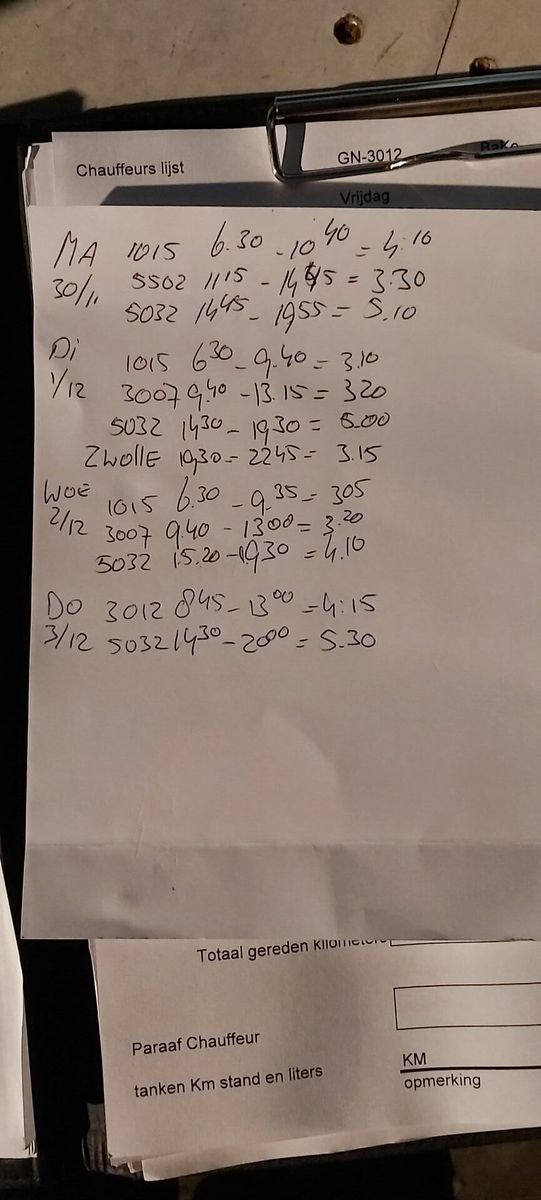 Chauffeurs lijst
GN-3012
Vrijdag
MA 1015 6.30 - 10 40 = 4:10
30/11 5502 11 15 - 14 45 = 3.30
5032 14 45 - 1955 = 5.10
Di 1015 6 30 - 9.40 = 3.10
1/12 3007 9.40 - 13.15 = 320
5032 14 30 - 1930 = 5.00
ZWOLLE 19,30 = 2245 = 3.15
WOE 1015 6.30 - 9.35 = 305
2/12 3007 9.40 - 13 00 = 3.20
5032 15.20 - 1930 = 4.10
DO 3012 8 45 - 13 00 = 4:15
3/12 5032 14 30 - 20 00 = 5.30
Totaal gereden kilometers
Paraaf Chauffeur
KM
tanken Km stand en liters
opmerking